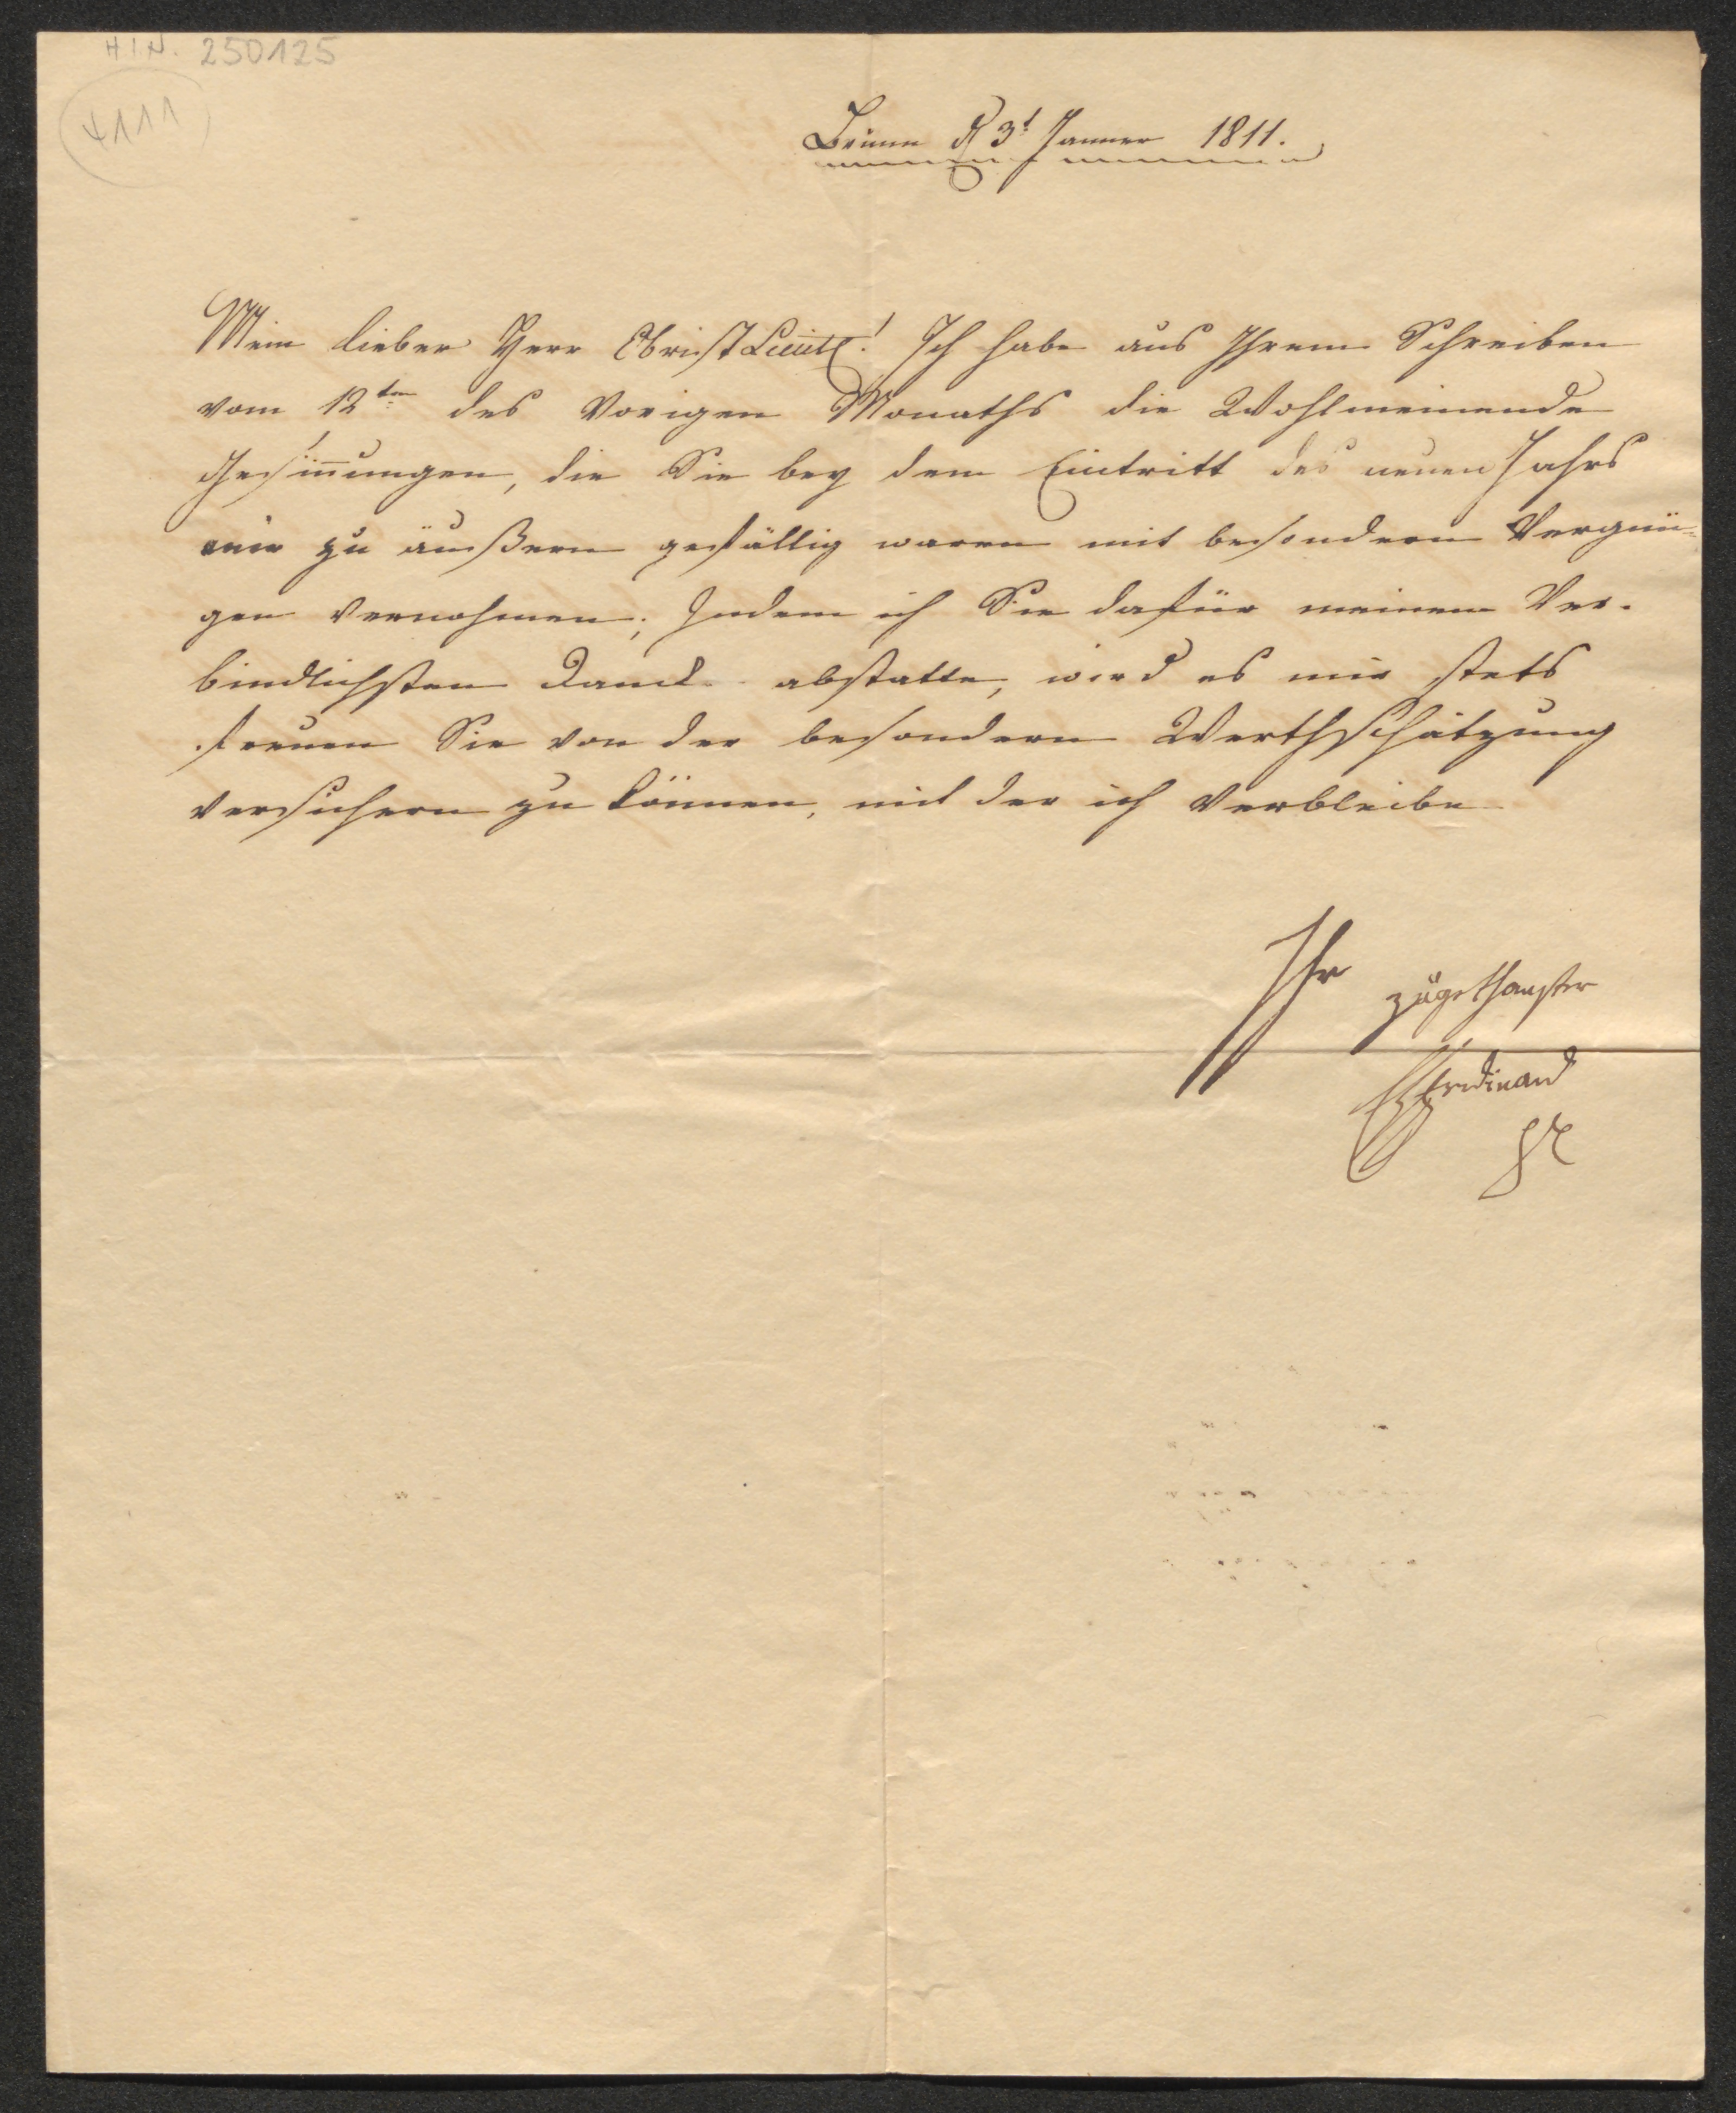 H.I.N. 250125
4111
Brünn d 3t Janner 1811.
Mein lieber Herr Obrist Lieut! Ich habe aus Ihrem Schreiben
vom 12ten des Vorigen Monaths die Wohlmeinende
Gesinnungen, die Sie bey dem Eintritt des neuen Jahrs
mir zu äußern gefällig waren mit besondern Vergnü-
gen vernohmen; Indem ich Sie dafür meinem Ver-
bindlichsten Danck abstatte, wird es mir stets
freuen Sie von der besondern Werthschätzung
versichern zu können, mit der ich Verbleibe
Ihr zugethanster
Ferdinand